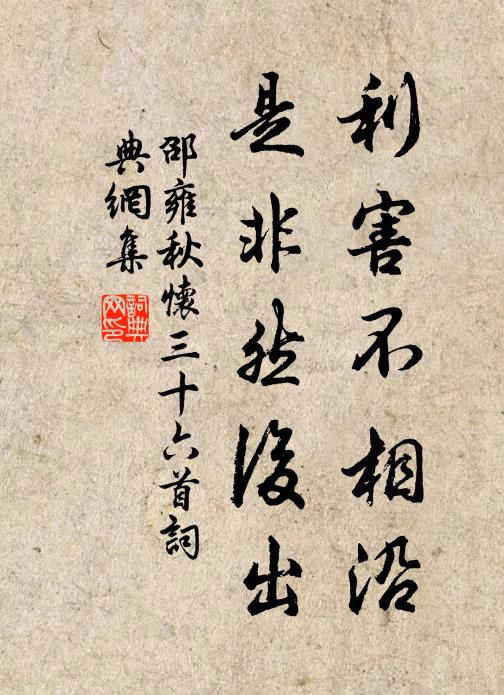 利害不相沿
是非然後出
邵雍秋懷三十六首詞
典網集
詞典
网印